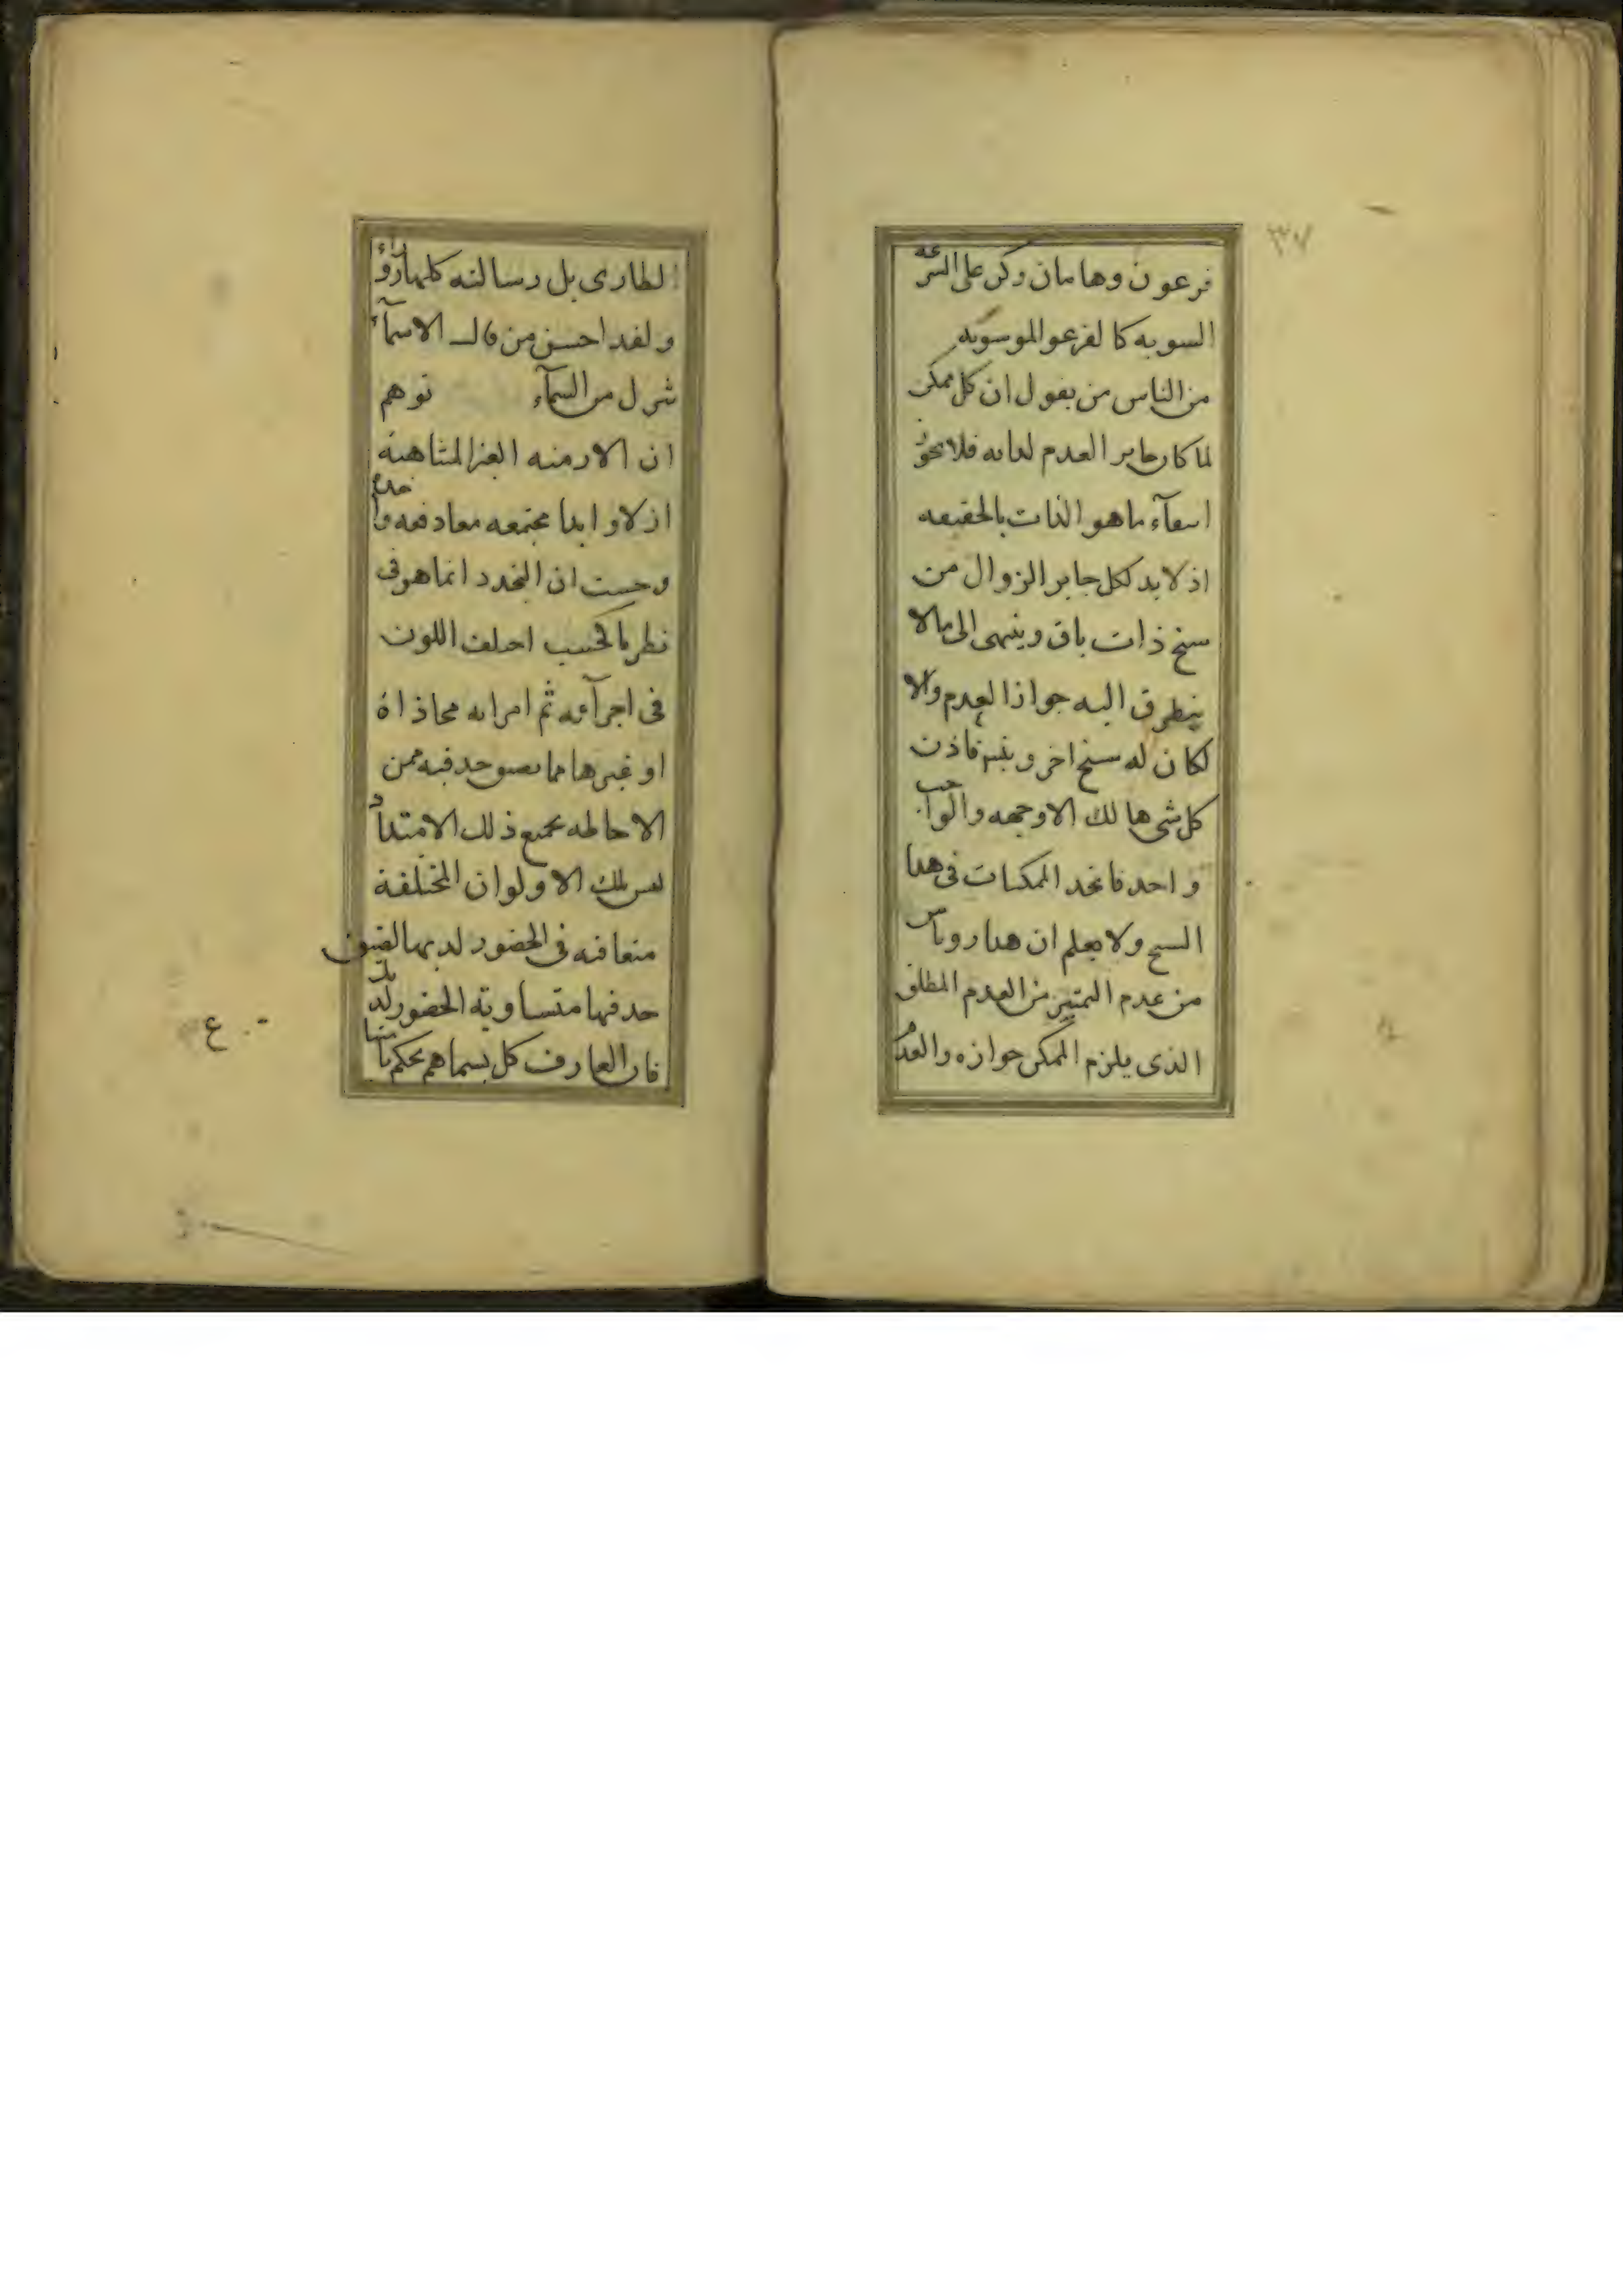 ٣٧
فرعون وهامان وكن على الشرعه
السويه كالفرعو الموسويه
من الناس من يقول ان كل ممكن
لما كان جايز العدم لذاته فلا يجوز
اسقآء ما هو الذات بالحقيقه
اذ لا بد لكل جايز الزوال من
سنخ ذات باق وينتهى الى ما لا
يتطرق اليه جواز العدم والا
لكان له سنخ اخر ويتم فاذن
كل شى هالك الا وجهه والواجب
واحد فاتحد الممكنات فى هذا
السنخ ولا يعلم ان هذا
من عدم التمييز من العدم المطلق
الذى يلزم الممكن جوازه والعدم
الطارى بل رسالته كلها
ولقد احسن من قال الاسمآء
تنزل من السمآء توهم
ان الازمنه الغير المتناهية
ازلا وابدا مجتمعه معا دفعه واحده
وحسبت ان التجدد انما هو فى
نظر ما كخشب اختلف اللون
فى اجزآئه ثم امراته محاذاة
او غيرها مما يضيق حدقته عن
الاحاطه بجميع ذلك الامتداد
تلك الاولوان المختلفة
متعاقبه فى الحضور لديها لضيق
حدقتها متساوية الحضور لديك
فان العارف كل بسماهم يحكم بانها
ع